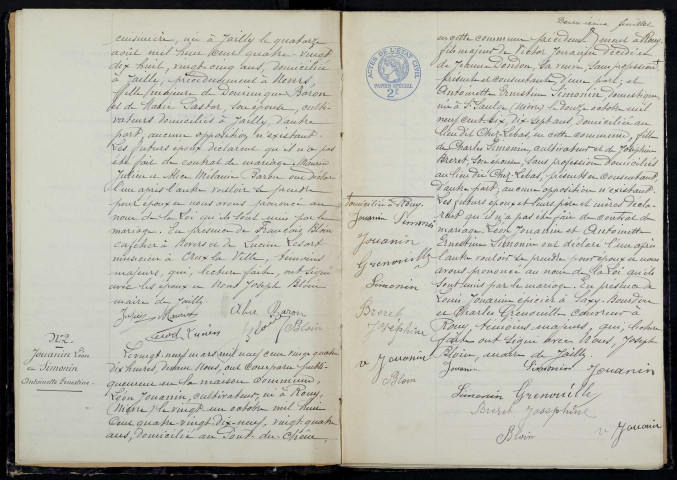 cuisinière, née à Jailly le quatorze
août mil huit cent quatre vingt
dix huit, vingt cinq ans, domiciliée
à Jailly, précédemment à Rovers,
fille majeure de Dominique Baron
et de Marie Pastor, son épouse, culti-
vateurs domiciliés à Jailly, d'autre
part, aucune opposition n'existant.
Les futurs époux déclarent qu'il n'a pas
été fait de contrat de mariage.
Julien et Alice Mélanie Baron ont déclaré
l'un après l'autre vouloir se prendre
pour époux et nous avons prononcé au
nom de la Loi qu'ils sont unis par le
mariage. En présence de François Bloin
cafetier à Rovers et de Lucien Lesort
à Crux la Ville, témoins
majeurs, qui, lecture faite, ont signé
avec les époux et Nous Joseph Bloin
maire de Jailly
Baron
Lucien
Bloin
N°2
Jouanin Léon
et Simonin
Antoinette Ernestine
Le vingt neuf mars mil neuf cent vingt quatre
dix heures, devant Nous, ont comparu publi-
quement en la maison commune,
Léon Jouanin, cultivateur, né à Rouy,
(Nièvre) le vingt un octobre mil huit
cent quatre vingt dix-neuf, vingt quatre
ans, domicilié au Pont-du-Chêne,
Deuxième feuillet
ACTES DE L'ETAT CIVIL
PAPIER SPECIAL
2
en cette commune précédemment à Rouy,
fils majeur de Victor Jouanin décédé et
de Jeanne Dondon, sa veuve, sans profession
présente et consentante d'une part; et
Antoinette Ernestine Simonin domestique,
née à St Saulge (Nièvre) le douze octobre mil
neuf cent six, dix sept ans, domiciliée au
lieu dit Chez Lebas, en cette commune, fille
de Charles Simonin, cultivateur et de Joséphine
Beret son épouse, sans profession domiciliés
au lieu dit Chez Lebas, présents et consentant
d'autre part, aucune opposition n'existant.
Les futurs époux et leurs père et mères décla-
rent qu'il n'a pas été fait de contrat de
mariage Léon Jouanin et Antoinette
Ernestine Simonin ont déclaré l'un après
l'autre vouloir se prendre pour époux et nous
avons prononcé au nom de la Loi qu'ils
sont unis par le mariage. En présence de
Louis Jouanin épicier à Saxy Bourdon
et Charles Grenouille couvreur à
Rouy, témoins majeurs, qui, lecture
faite ont signé avec Nous, Joseph
Bloin, maire de Jailly
domiciliée à Rouy.
Jouanin Simonin
Jouanin
Grenouille
Simonin
Beret
Joséphine
v Jouanin
Bloin
Jouanin Simonin Jouanin
Simonin Grenouille
Beret Joséphine
Bloin v Jouanin